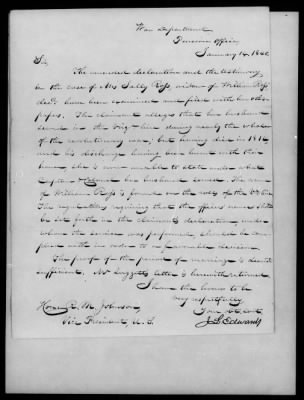 War Department
Pension Office,
January 14, 1840
Sir,
The amended declaration and the testimony
in the case of Mrs Sally Ross, widow of William Ross
decd. have been examined and filed with her other
papers. The claimant alleges that her husband
served in the Virg. line during nearly the whole
of the revolutionary war; but having died in 1812
and his discharge having been burnt with the
house she is now unable to state under what
Captain or Colonel her husband served. The name
of William Ross is found on the rolls of the
The regulations requiring that the officers names should
be set forth in the claimants declaration, under
whom the service was performed, should be com
plied with in order to a favorable decision.
The proof of the period of marriage is deemed
sufficient. Mr letter is herewith returned
I have the honor to be
very respectfully
Your obt. svt.
J. L. Edwards
Honble R. M. Johnson,
Vice President, U. S.